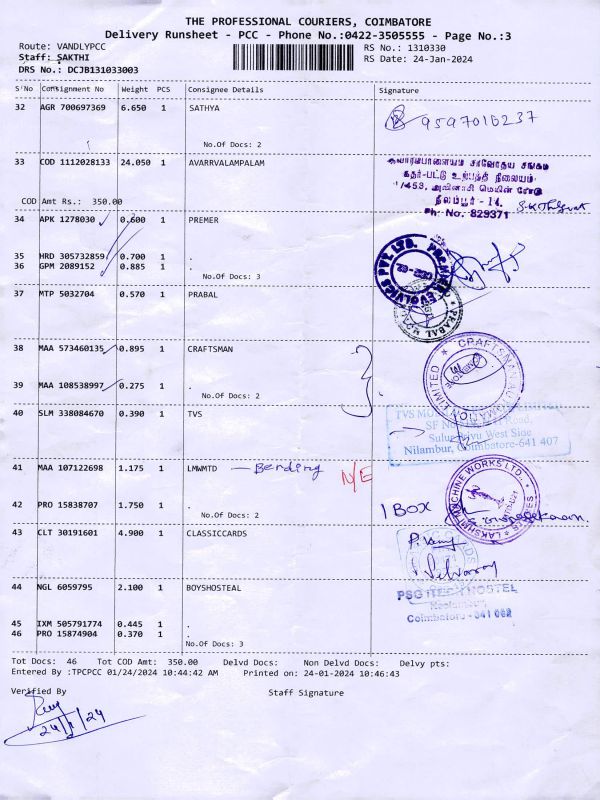 THE PROFESSIONAL COURIERS, COIMBATORE
Delivery Runsheet - PCC - Phone No.:0422-3505555 - Page No.:3
Route: VANDLYPCC RS No.: 1310330
Staff: SAKTHI RS Date: 24-Jan-2024
DRS No.: DCJB131033003
S'No Consignment No Weight PCS Consignee Details Signature
32 AGR 700697369 6.650 1 SATHYA 9597016237
No.Of Docs: 2
33 COD 1112028133 24.050 1 AVARRVALAMPALAM
கதர்-பட்டு உற்பத்தி நிலையம்
1/453, அவினாசி மெயின் ரோடு
நீலம்பூர் - 14.
Ph: No: 829371
COD Amt Rs.: 350.00
34 APK 1278030 0.600 1 PREMER
35 HRD 305732859 0.700 1 .
36 GPM 2089152 0.885 1 .
No.Of Docs: 3
PREMIER EVOLVICS PVT. LTD.
37 MTP 5032704 0.570 1 PRABAL
PRABAL
38 MAA 573460135 0.895 1 CRAFTSMAN
CRAFTSMAN AUTOMATION LIMITED
39 MAA 108538997 0.275 1 .
No.Of Docs: 2
40 SLM 338084670 0.390 1 TVS
Nilambur, Coimbatore-641 407
41 MAA 107122698 1.175 1 LMWMTD - Bending N/E
LAKSHMI MACHINE WORKS LTD.
42 PRO 15838707 1.750 1 . 1 BOX
No.Of Docs: 2
43 CLT 30191601 4.900 1 CLASSICCARDS
44 NGL 6059795 2.100 1 BOYSHOSTEAL
PSG iTECH HOSTEL
Coimbatore - 641 062
45 IXM 505791774 0.445 1 .
46 PRO 15874904 0.370 1 .
No.Of Docs: 3
Tot Docs: 46 Tot COD Amt: 350.00 Delvd Docs: Non Delvd Docs: Delvy pts:
Entered By :TPCPCC 01/24/2024 10:44:42 AM Printed on: 24-01-2024 10:46:43
Verified By Staff Signature
24/1/24